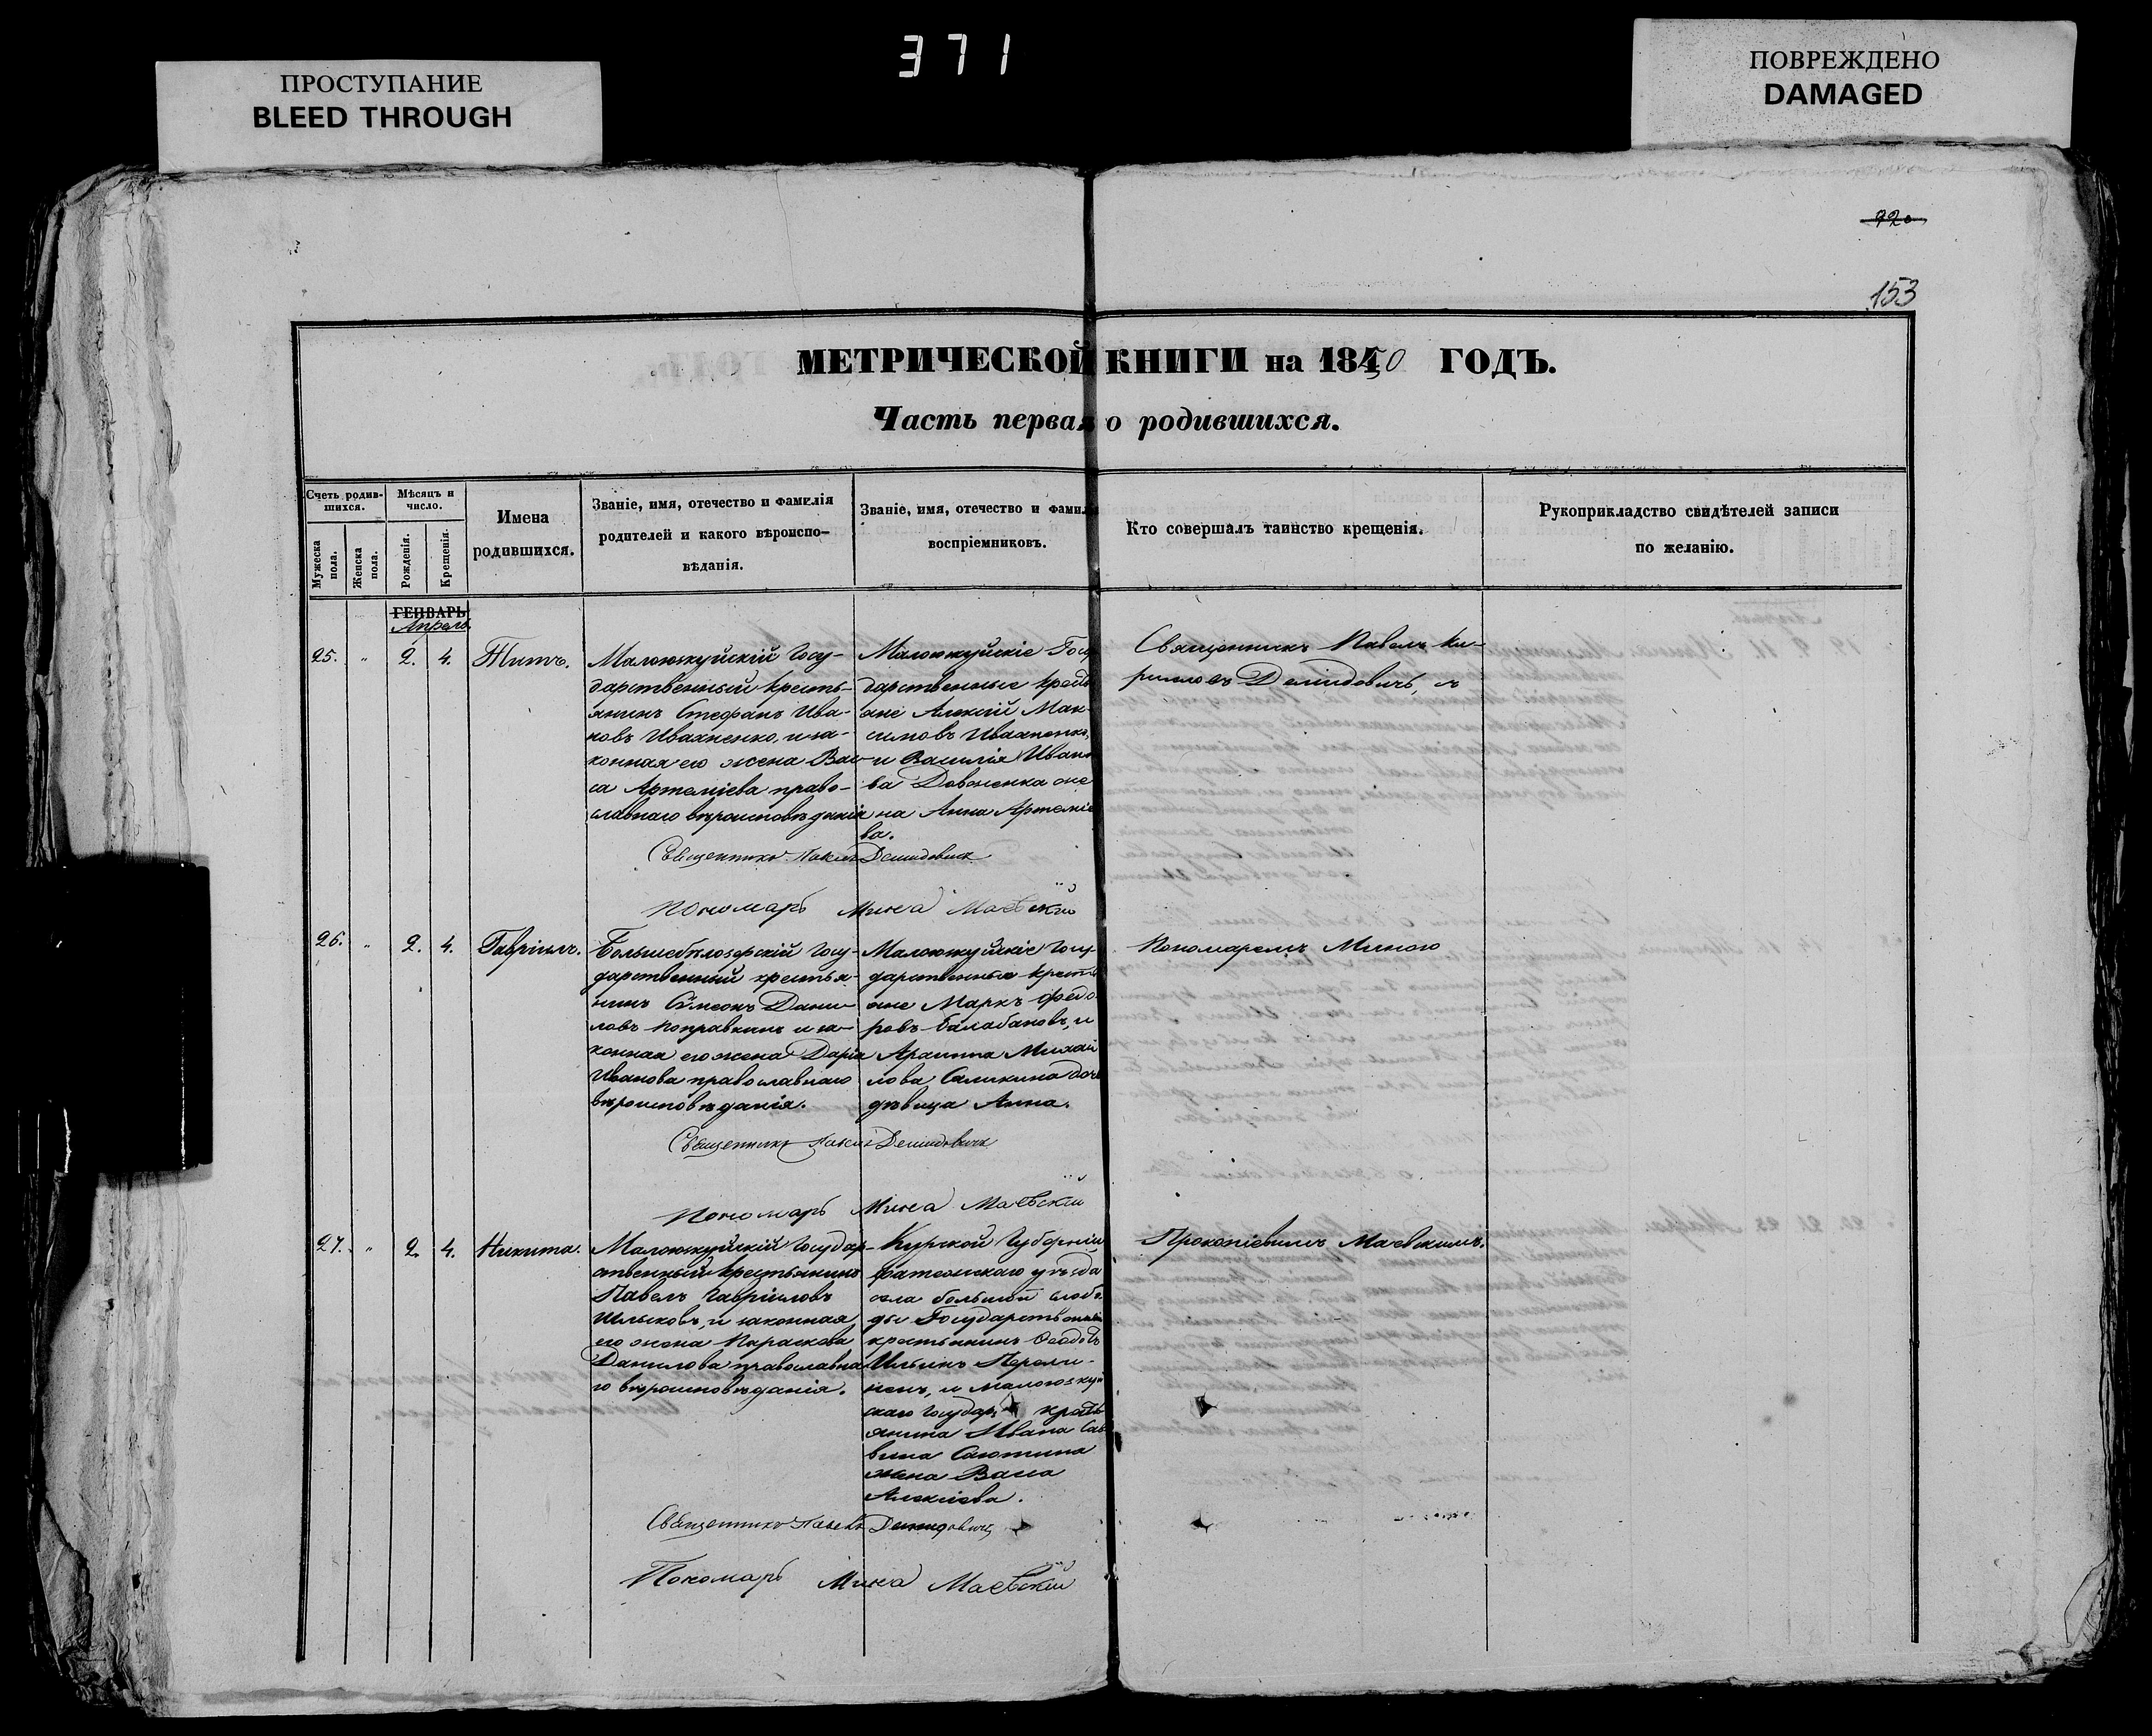 371
ПРОСТУПАНИЕ
BLEED THROUGH
ПОВРЕЖДЕНО
DAMAGED
920
153
МЕТРИЧЕСКОЙ КНИГИ на 1850 ГОДЪ.
Часть первая о родившихся.
Счетъ родив-
шихся.
Мѣсяцъ и
число.
Имена
родившихся.
Званіе, имя, отечество и фамилія
родителей и какого вѣроиспо-
вѣданія.
Званіе, имя, отечество и фамилі
воспріемниковъ.
Кто совершалъ таинство крещенія.
Рукоприкладство свидѣтелей записи
по желанію.
Мужеска
пола.
Женска
пола.
Рожденія.
Крещенія.
ГЕНВАРЬ
Апрель
25. " 2. 4. Титъ.
Малоюжуйскій Госу-
дарственный кресть-
янинъ Стефанъ Ива-
новъ Ивахненко, и за-
конная его жена Вас-
са Артеміева право-
славнаго вѣроисповѣданія
Малоюжуйскіе Госу
дарственные кресть
яне Алексій Мак-
симовъ Ивахненко,
и Василія Ивано
ва Довженка же
на Анна Артеміе
ва.
Священникъ Павелъ Ки-
рилловъ Демидовичъ, съ
Священникъ Павелъ Демидовичъ
Пономарь Мина Маевскій
26. " 2. 4. Гавріилъ.
Большебѣлозерскій Госу-
дарственный крестья-
нинъ Сѵмеонъ Дани-
ловъ Поправкинъ и за-
конная его жена Дарія
Иванова православнаго
вѣроисповѣданія.
Малоюжуйскіе Госу-
дарственные кресть
яне Маркъ Федо
ровъ Балабановъ, и
Михаи
лова Саликина дочь
дѣвица Анна.
Пономаремъ Миною
Священникъ Павелъ Демидовичъ
Пономарь Мина Маевскій
27. " 2. 4. Никита.
Малоюжуйскій Государ-
ственный крестьянинъ
Павелъ Гавріиловъ
и законная
его жена Параскева
Данилова православна
го вѣроисповѣданія.
Курской Губерніи
Фатежскаго уѣзда
села большой слобо
ды Государственный
крестьянинъ
Ильинъ
и Малоюжуй
скаго Государ кресть
янина Ивана Сав
вина Сиротина
жена Васса
Алексіева.
Прокопіевымъ Маевскимъ.
Священникъ Павелъ Демидовичъ
Пономарь Мина Маевскій